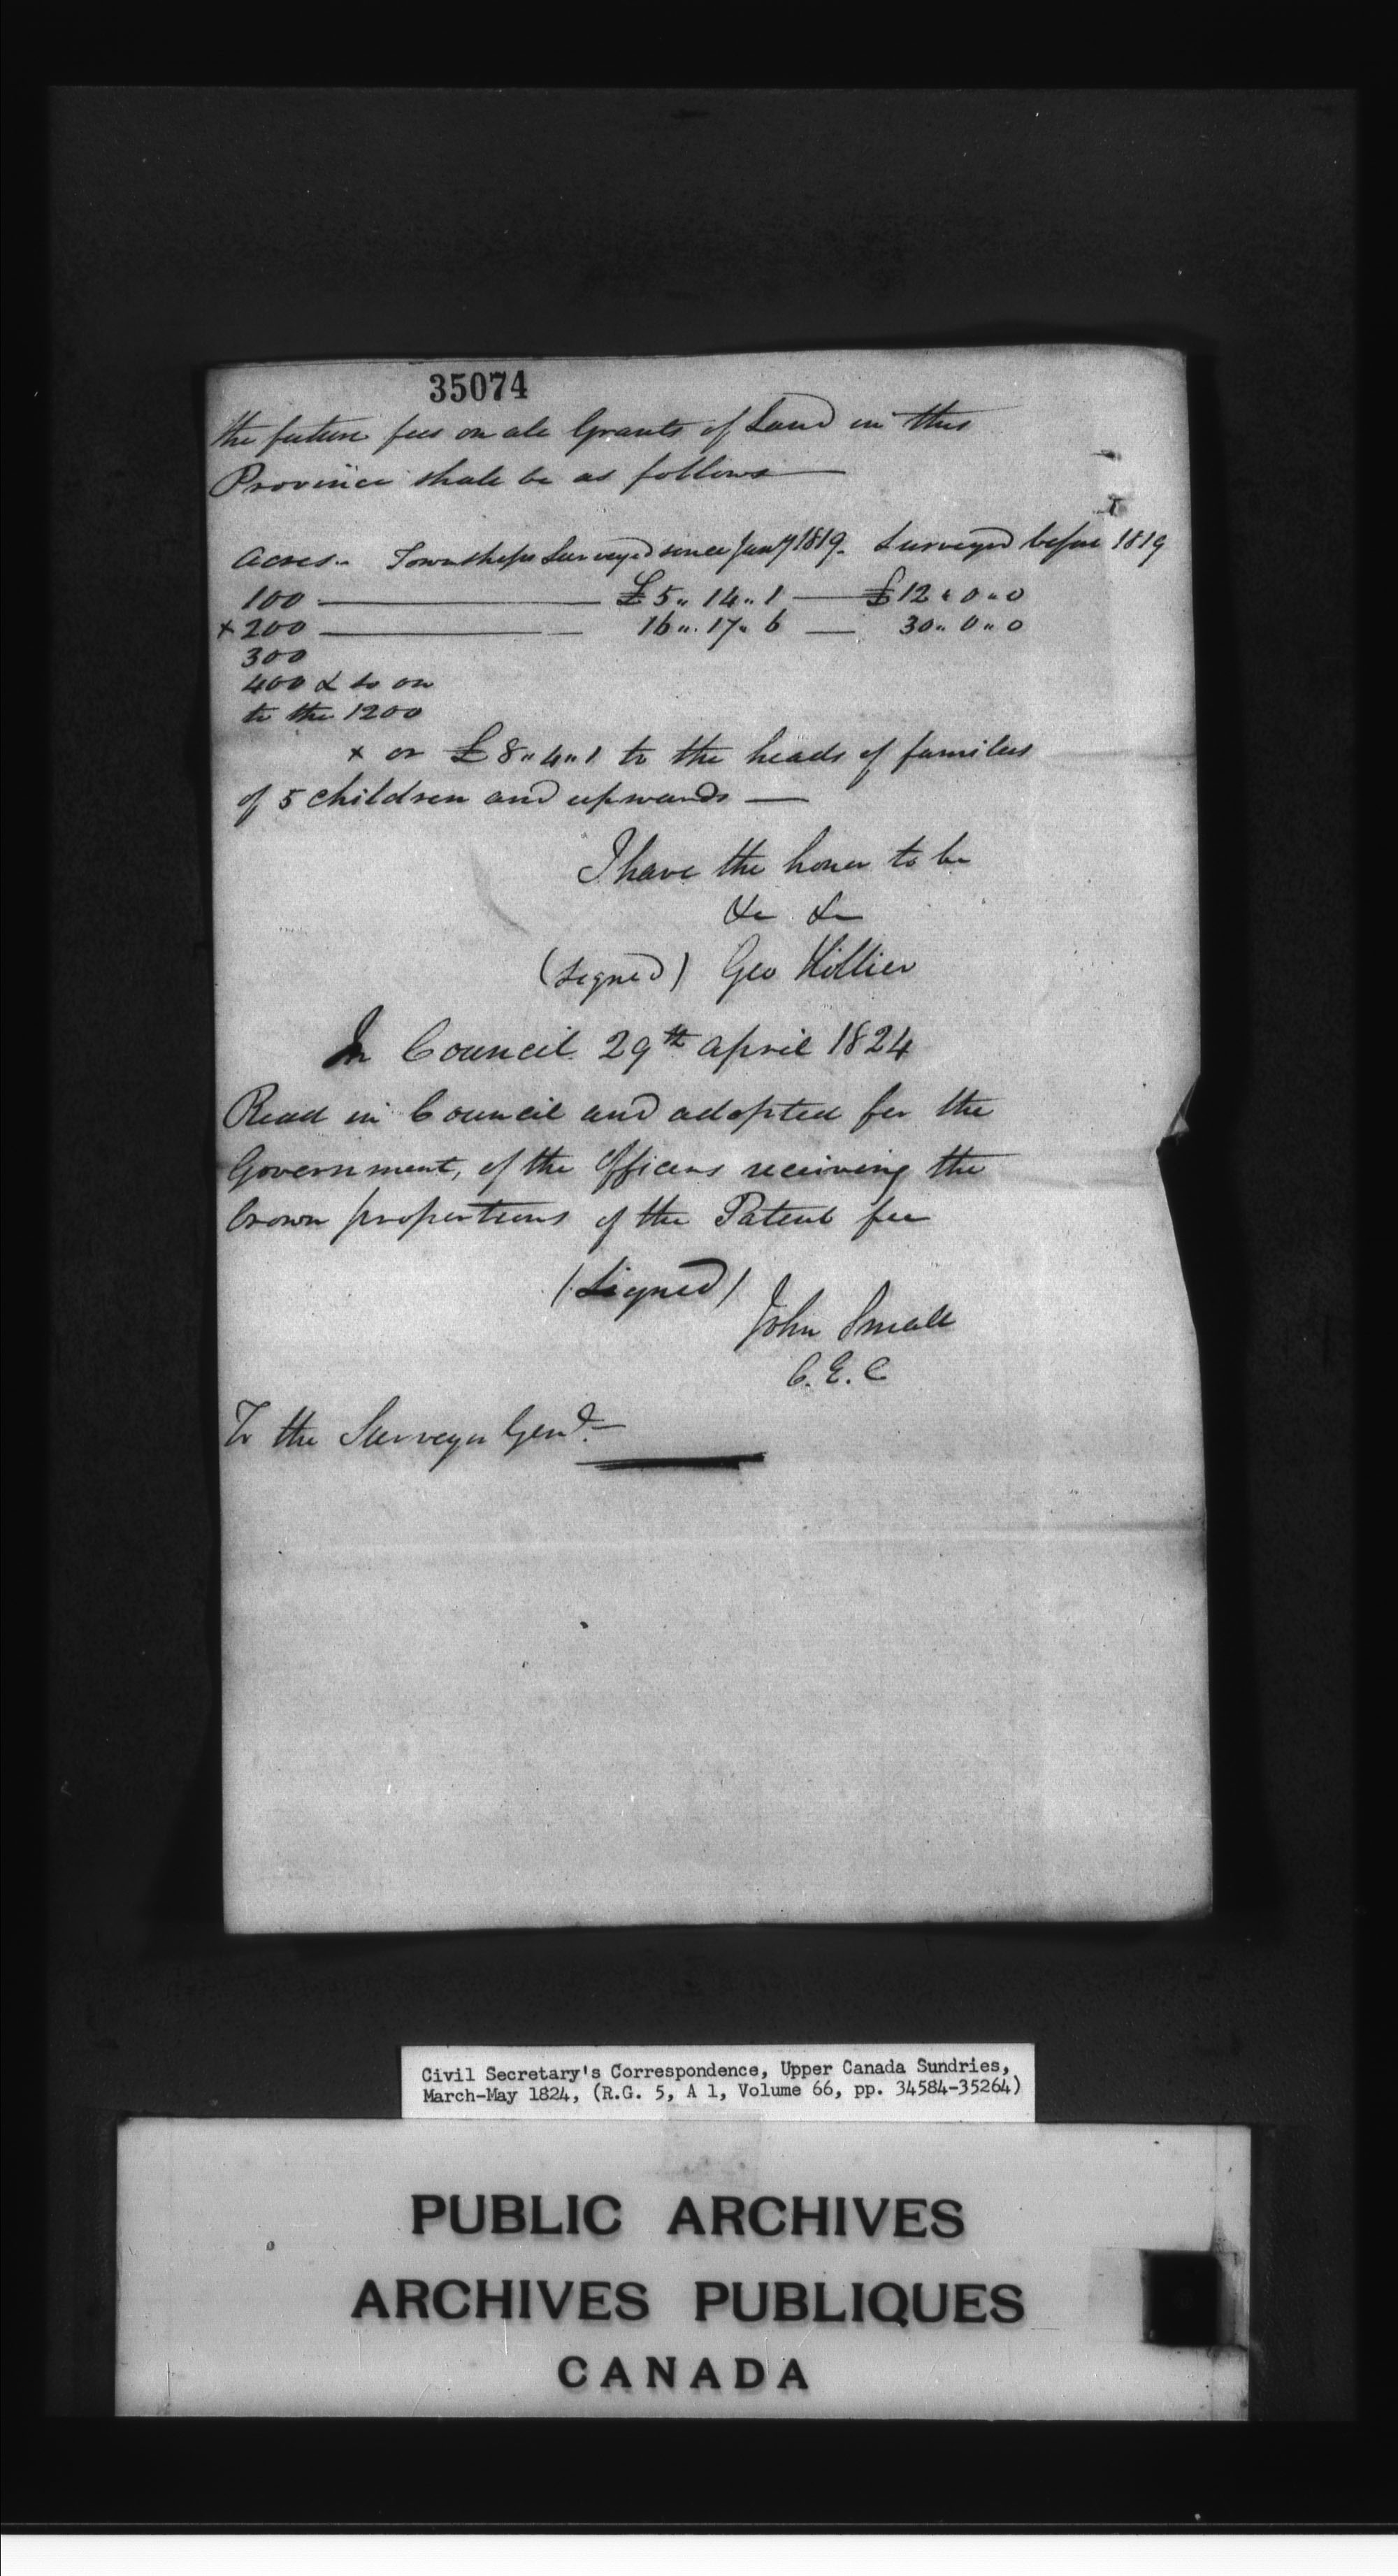 35074
the future fees on all Grants of Land in this
Province shall be as follows —
Acres.. Townships Surveyed since Jany 1819. Surveyed before 1819
100 — £5 " 14 " 1 — £12 " 0 " 0
x 200 — 16 " 17 " 6 — 30 " 0 " 0
300
400 & so on
to the 1200
x or £8 " 4 " 1 to the heads of families
of 5 children and upwards —
I have the honor to be
&c &c
(signed) Geo Hillier
In Council 29th April 1824
Read in Council and adopted for the
Government, of the Officers receiving the
Crown proportions of the Patent fee
(Signed)
John Small
C. E. C
To the Surveyor Genl. —
Civil Secretary's Correspondence, Upper Canada Sundries,
March-May 1824, (R.G. 5, A 1, Volume 66, pp. 34584-35264)
PUBLIC ARCHIVES
ARCHIVES PUBLIQUES
CANADA